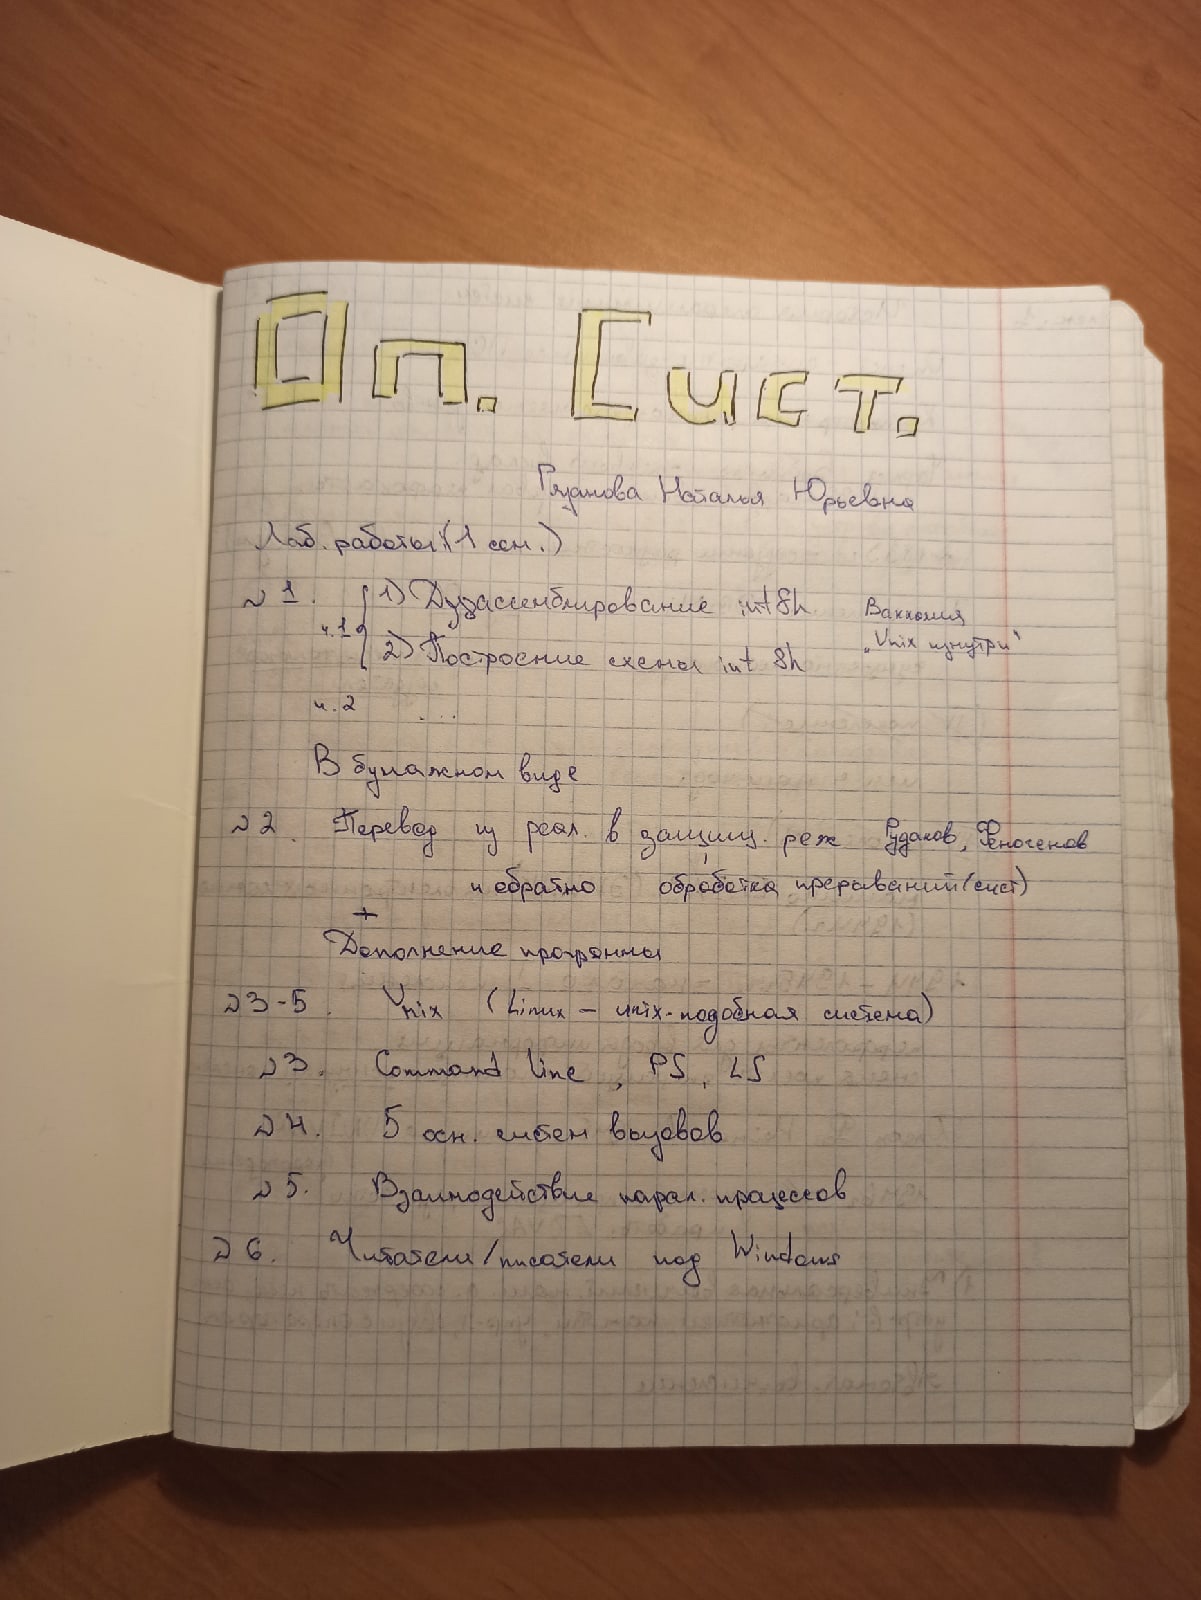 Оп. Сист.
Рязанова Наталья Юрьевна
Лаб. работы: (1 сем.)
№1. 1) Дизассемблирование int 8h Вахалия
ч.1 2) Построение схемы int 8h „Unix изнутри“
ч.2 ...
В бумажном виде
№2 Перевод из реал. в защищ. реж Рудаков, Финогенов
и обратно обработка прерываний (сист)
+
Дополнение программы
№3-5. Unix (Linux — unix-подобная система)
№3. Command line, PS, LS
№4. 5 осн. систем вызовов
№5. Взаимодействие парал. процессов
№6. Читатели/писатели под Windows